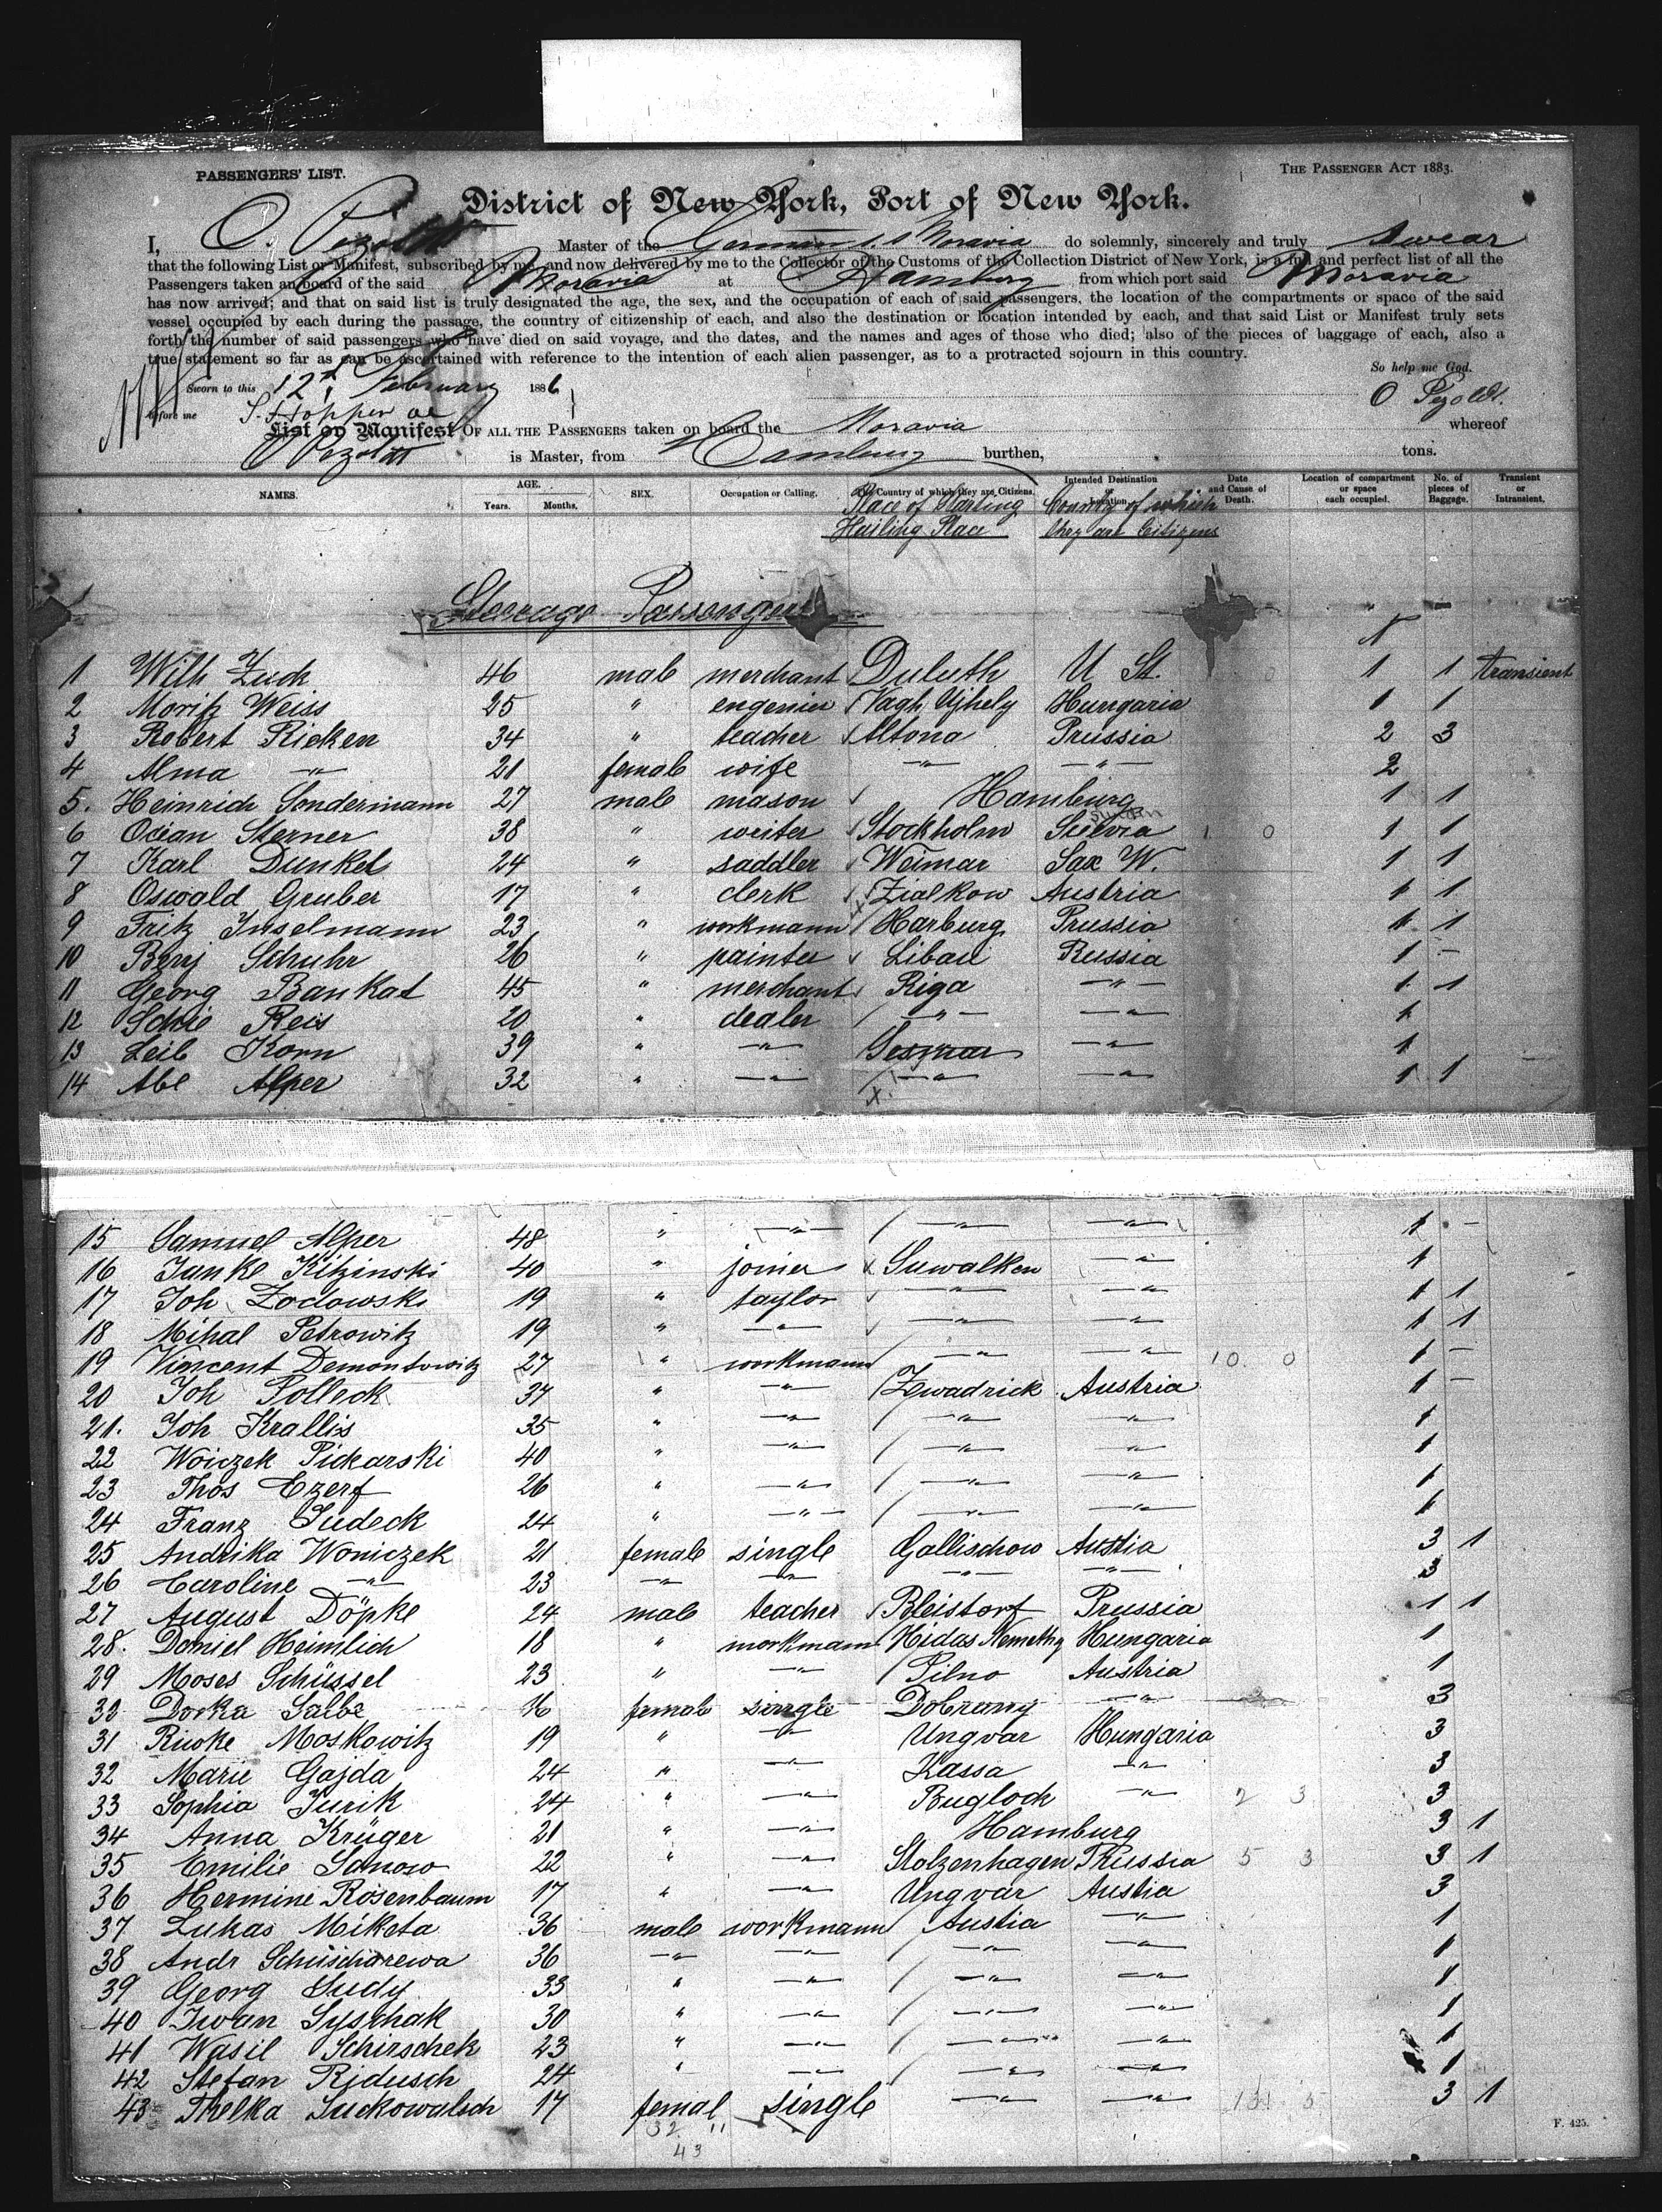 PASSENGERS' LIST.
THE PASSENGER ACT 1883.
District of New York, Port of New York.
I, O. Pezoldt Master of the German S.S Moravia do solemnly, sincerely and truly swear
that the following List or Manifest, subscribed by me, and now delivered by me to the Collector of the Customs of the Collection District of New York, is a full and perfect list of all the
Passengers taken on board of the said Moravia at Hamburg from which port said Moravia
has now arrived; and that on said list is truly designated the age, the sex, and the occupation of each of said passengers, the location of the compartments or space of the said
vessel occupied by each during the passage, the country of citizenship of each, and also the destination or location intended by each, and that said List or Manifest truly sets
forth the number of said passengers who have died on said voyage, and the dates, and the names and ages of those who died; also of the pieces of baggage of each, also a
true statement so far as can be ascertained with reference to the intention of each alien passenger, as to a protracted sojourn in this country.
So help me God.
Sworn to this 12th February 1886
O Pezoldt.
before me S. Hopper
List or Manifest OF ALL THE PASSENGERS taken on board the Moravia whereof
O Pezoldt is Master, from Hamburg burthen, tons.
NAMES. AGE. Years. Months. SEX. Occupation or Calling. The Country of which they are Citizens. Intended Destination or Location. Date and Cause of Death. Location of compartment or space each occupied. No. of pieces of Baggage. Transient or Intransient.
Place of Starting Country of which
Hailing Place they are Citizens
Steerage Passengers
1 Wilh Zuch 46 male merchant Duluth U St. 1 1 transient
2 Moritz Weiss 25 " engenier Vagh Ujhely Hungaria 1 1
3 Robert Ricken 34 " teacher Altona Prussia 2 3
4 Alma —"— 21 female wife —"— —"— 2
5. Heinrich Sondermann 27 male mason Hamburg 1 1
6 Ocian Sterner 38 " Stockholm Suevia 1 0 1 1
7 Karl Dunkel 24 " saddler Weimar Sax W. 1 1
8 Oswald Gruber 17 " clerk Zialkow Austria 1 1
9 Fritz Inselmann 23 " workmann Harburg Prussia 1 1
10 Benj Schuhr 26 " painter Libau Russia 1 -
11 Georg Bankat 45 " merchant Riga —"— 1 1
12 Schie Reis 20 " dealer —"— —"— 1
13 Leib Korn 39 " —"— —"— 1
14 Abe Alper 32 " —"— —"— —"— 1 1
15 Samuel Alper 48 " —"— —"— —"— 1 -
16 Janke Kitzinski 40 " joiner Suwalken —"— 1
17 Joh Zodowski 19 " taylor —"— —"— 1 1
18 Mihal Petrowitz 19 " —"— —"— —"— 1 1
19 Vincent Demontowitz 27 " workmann —"— —"— 10 0 1 -
20 Joh Polleck 37 " —"— Zwadrick Austria 1 -
21. Joh Krallis 35 " —"— —"— —"— 1
22 Woiczek Pickarski 40 " —"— —"— —"— 1
23 Thos Ezerf 26 " —"— —"— —"— 1
24 Franz Sudeck 24 " —"— —"— —"— 1
25 Andrika Woniczek 21 female single Gallischow Austia 3 1
26 Caroline —"— 23 —"— —"— —"— —"— 3
27 August Döpke 24 male teacher Bleistorf Prussia 1 1
28. Daniel Heimlich 18 " workmann Hidas Nemethy Hungaria 1
29 Moses Schüssel 23 " —"— Pilno Austria 1
30 Dorka Salbe 16 female single Dobrany —"— 3
31 Riwke Moskowitz 19 " —"— Ungvar Hungaria 3
32 Marie Gajda 24 " —"— Kassa —"— 3
33 Sophia Jurik 24 " —"— Bugloch —"— 2 3 3
34 Anna Krüger 21 " —"— Hamburg 3 1
35 Emilie Sanow 22 " —"— Stolzenhagen Prussia 5 3 3 1
36 Hermine Rosenbaum 17 " —"— Ungvar Austia 3
37 Lukas Miketa 36 male workmann Austia —"— 1
38 Andr Schuscharewa 36 —"— —"— —"— —"— 1
39 Georg Sudy 33 " —"— —"— —"— 1
40 Iwan Syschak 30 " —"— —"— —"— 1
41 Wasil Schirschek 23 " —"— —"— —"— 1
42 Stefan Ridusch 24 " —"— —"— —"— 1
43 Thelka Suckowalsch 17 femal single —"— —"— 3 1
32 11
43
F. 425.